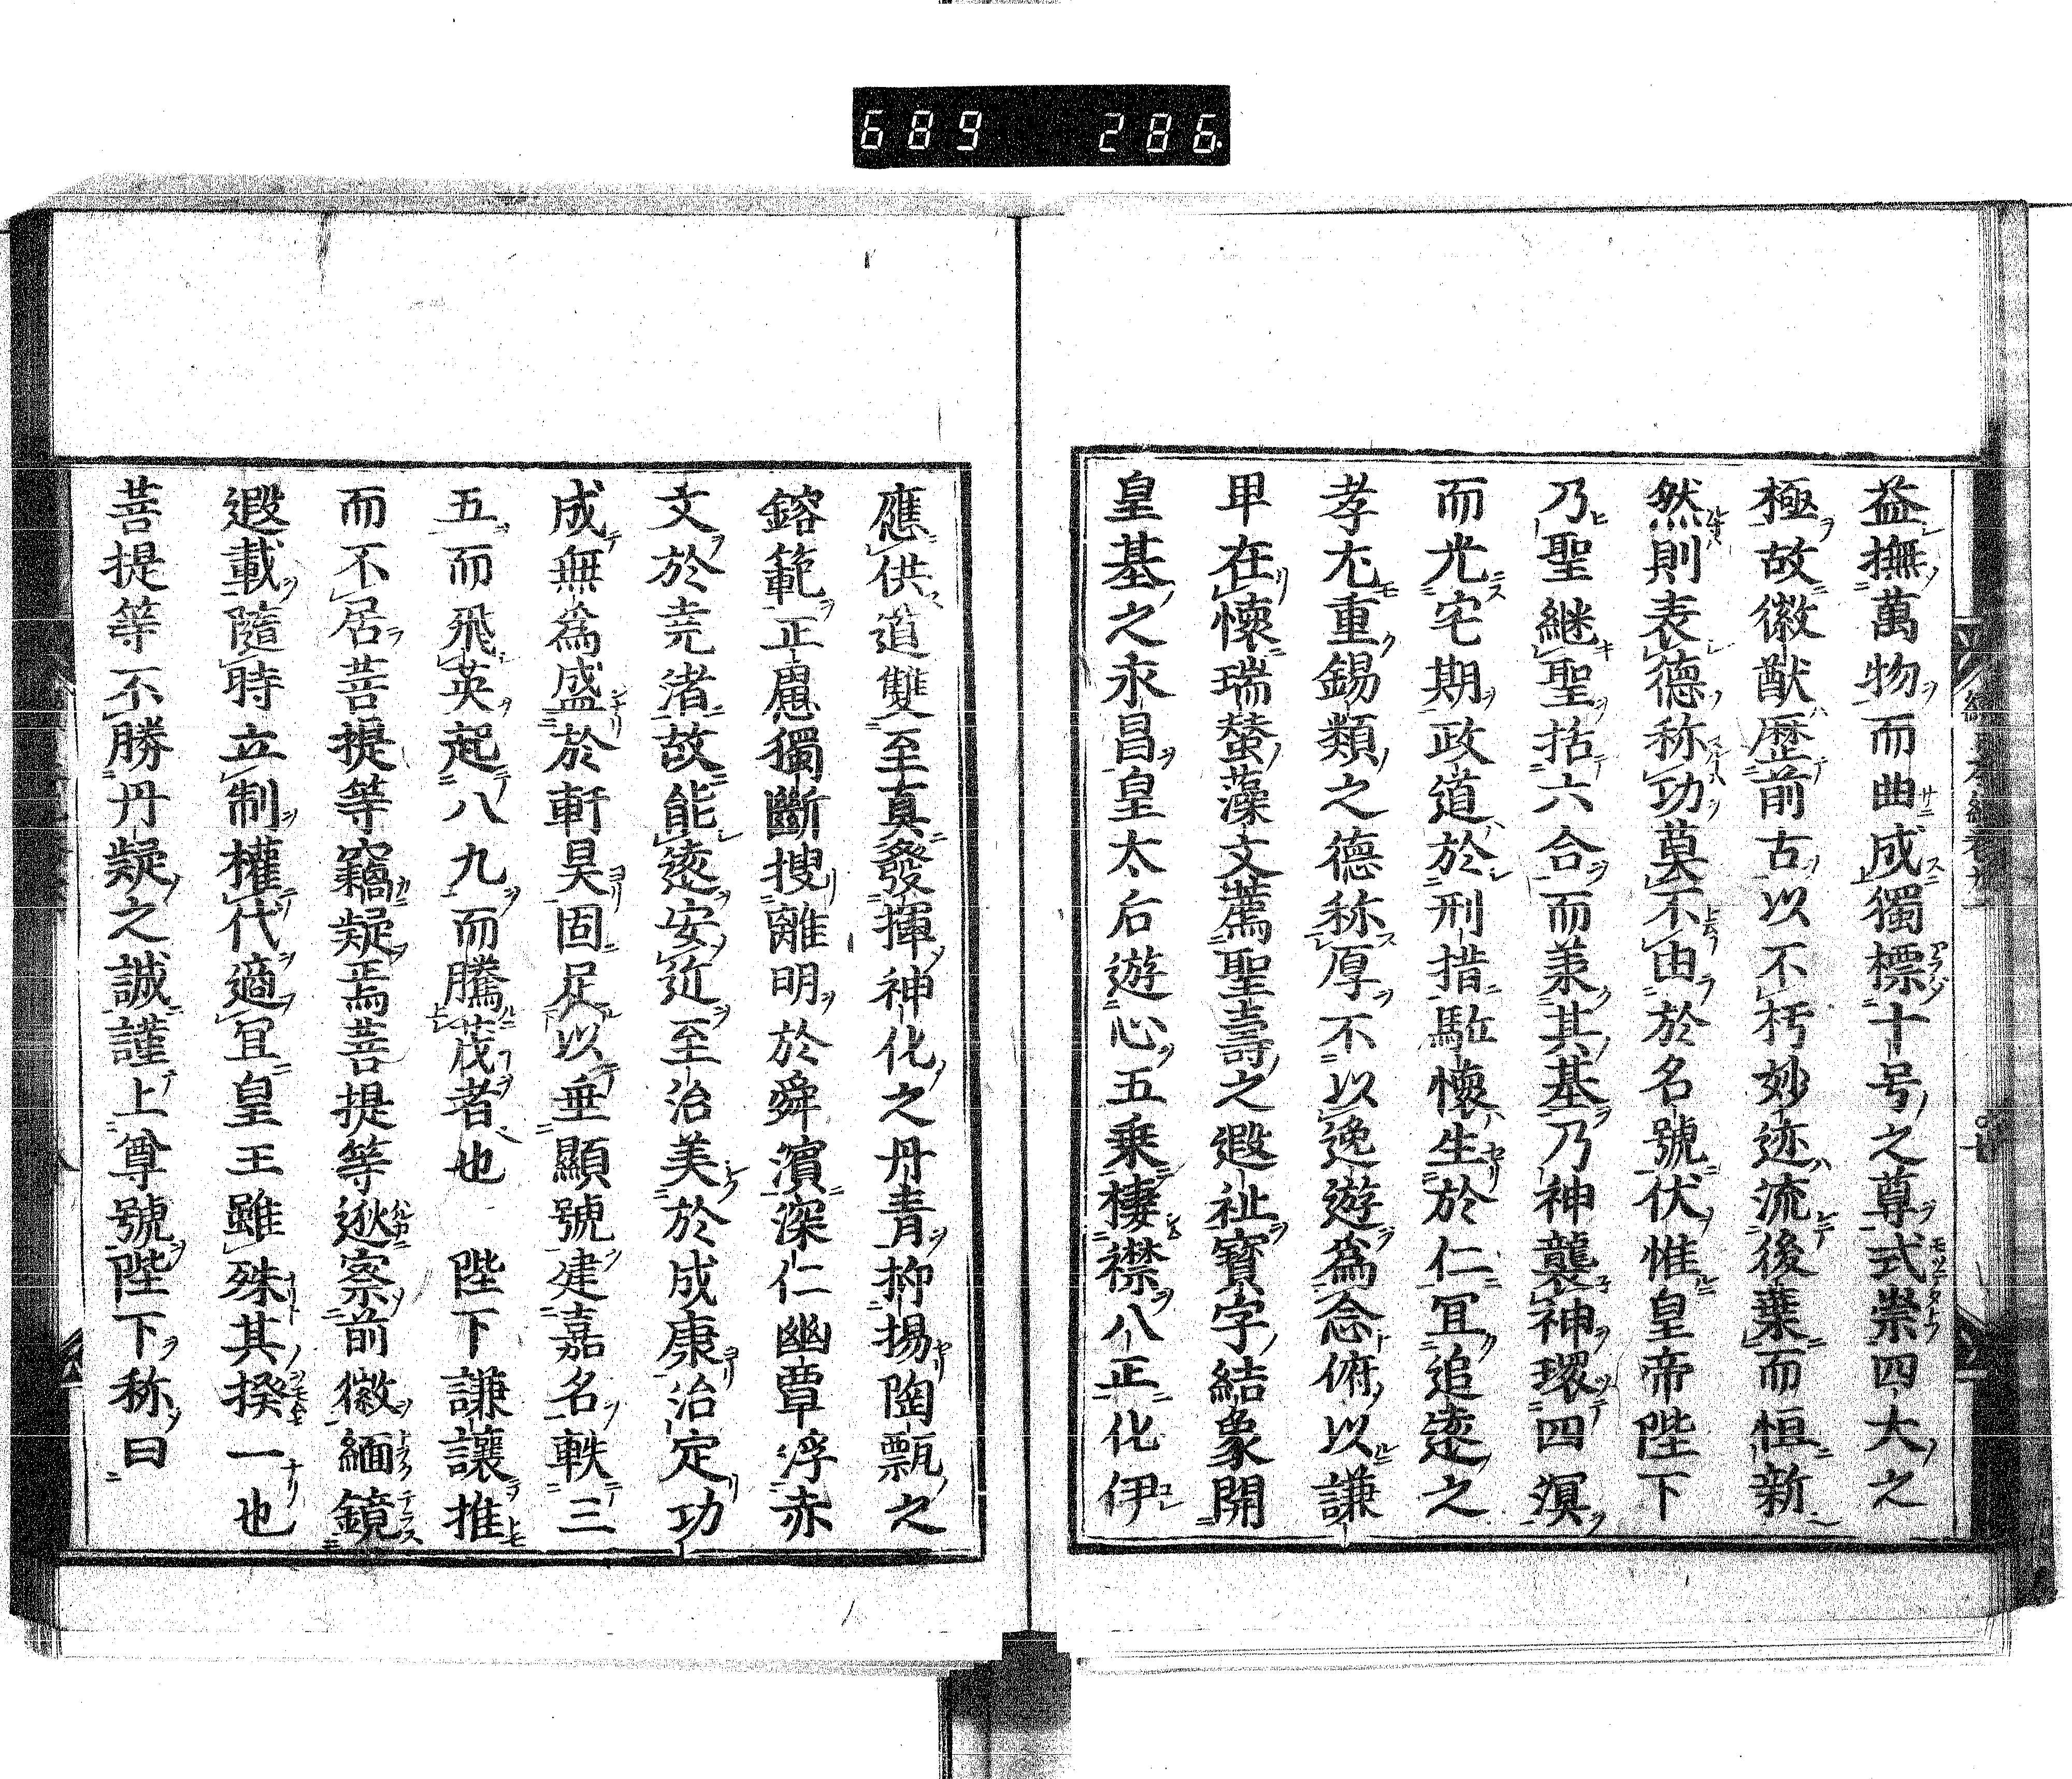 689 286
益撫萬物而曲成獨標十号之尊式崇四大之
極故徽猷歷前古以不朽妙迹流後葉而恒新
然則表德称功莫不由於名號伏惟皇帝陛下
乃聖継聖括六合而兼其基乃神襲神環四溟
而光宅期政道於刑措駈懷生於仁冝追遠之
孝尤重錫類之德称厚不以逸遊為念俯以謙
甲在懷瑞蛬藻文薦聖壽之遐祉寳字結象開
皇基之永昌皇太后遊心五乗棲襟八正化伊
應供道雙至真發揮神化之丹青抑揚陶甄之
鎔範正慮獨斷搜離明於舜濱深仁幽覃浮赤
文於尭渚故能遠安近至治美於成康治定功
成無為盛於軒昊固足以垂顯號建嘉名軼三
五而飛英起八九而騰茂者也 陛下謙讓推
而不居菩提等竊疑焉菩提等逖察前徽緬鏡
遐載隨時立制權代適冝皇王雖殊其揆一也
菩提等不勝丹疑之誠謹上尊號陛下称曰